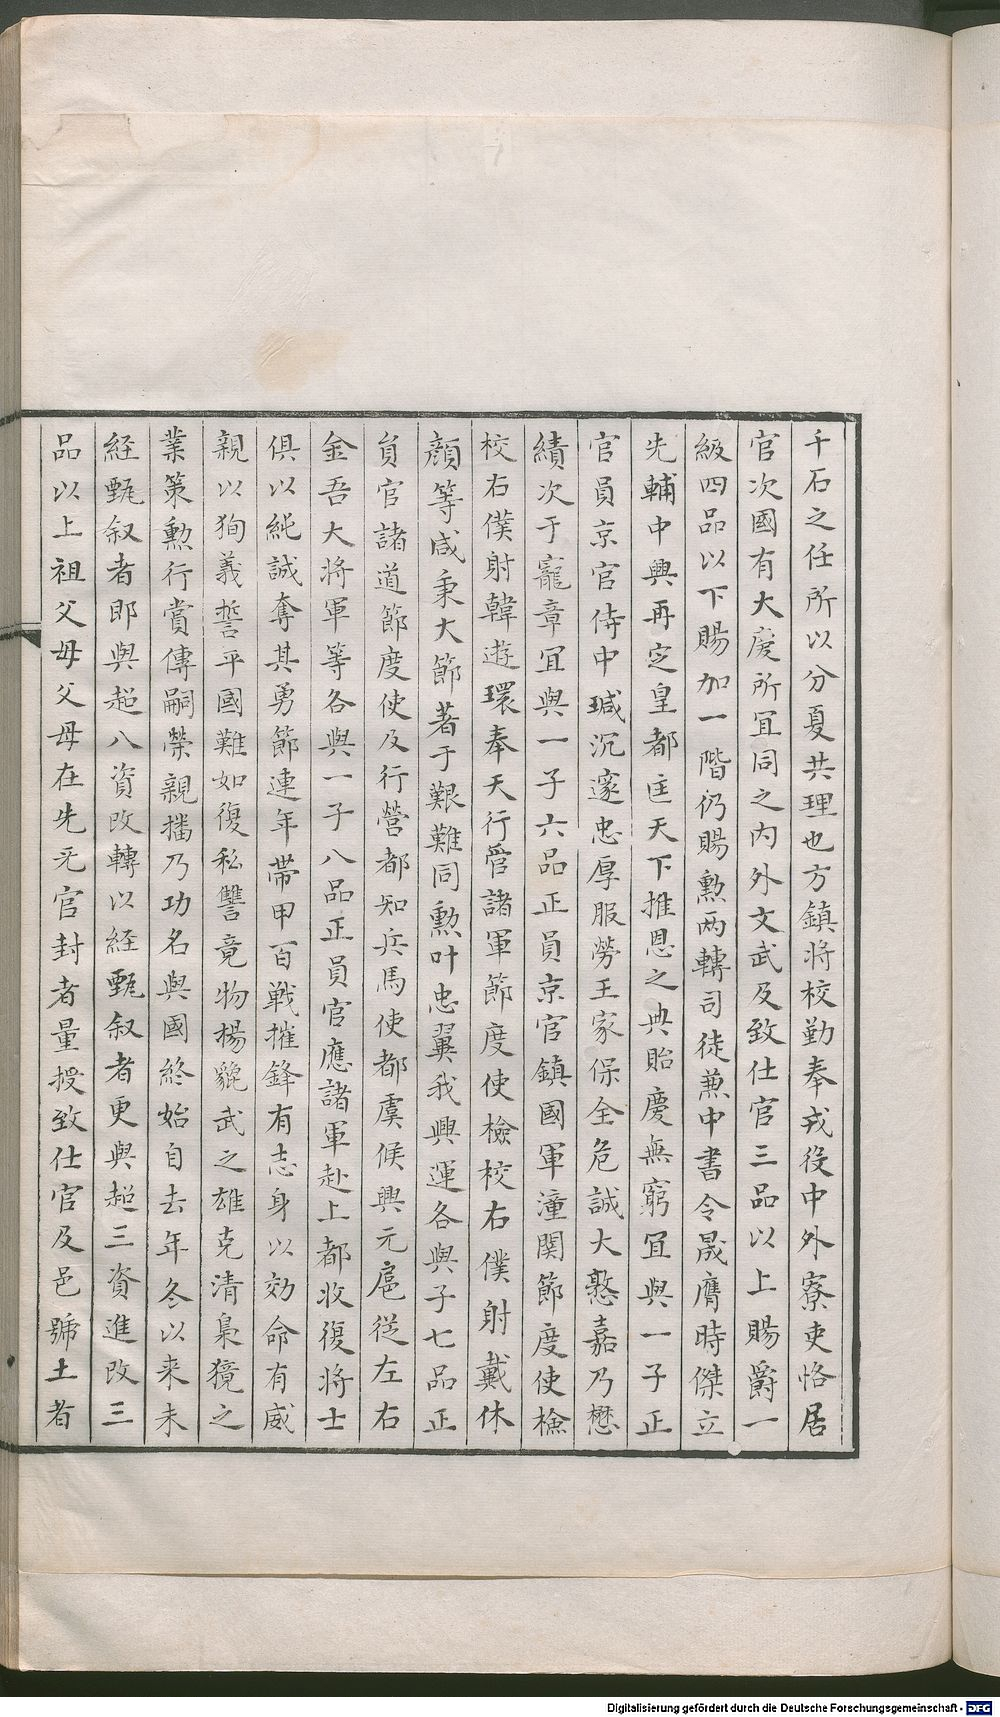 千石之任所以分夏共理也方鎮將校勤奉戎役中外寮吏恪居
官次國有大慶所宜同之内外文武及致仕官三品以上賜爵一
級四品以下賜加一階仍賜勲两轉司徒兼中書令晟膺時傑立
先輔中興再定皇都匡天下推恩之典貽慶無窮宜與一子正
官員京官侍中瑊沉邃忠厚服勞王家保全危誠大憝嘉乃懋
績次于寵章宜與一子六品正員京官鎮國軍潼関節度使檢
校右僕射韓遊環奉天行營諸軍節度使檢校右僕射戴休
顔等咸秉大節著于艱難同勲叶忠翼我興運各與子七品正
員官諸道節度使及行營都知兵馬使都虞候興元扈従左右
金吾大將軍等各與一子八品正員官應諸軍赴上都收復將士
俱以純誠奪其勇節連年帯甲百戰摧鋒有志身以効命有威
親以狥義誓平國難如復私讐竟物揚貔武之雄克清梟獍之
業策勲行賞傳嗣榮親播乃功名與國終始自去年冬以来未
経甄叙者即與超八資改轉以経甄叙者更與超三資進改三
品以上祖父母父母在先无官封者量授致仕官及邑號土者
Digitalisierung gefördert durch die Deutsche Forschungsgemeinschaft - DFG